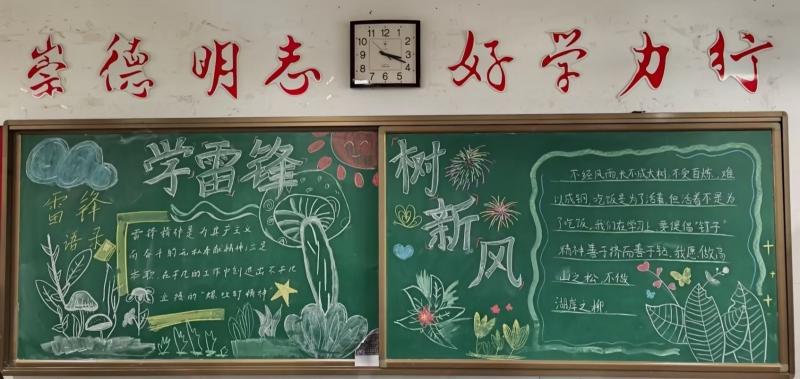 崇德明志
好学力行
12
1
2
3
4
5
6
7
8
9
10
11
学雷锋
雷锋
语录
雷锋精神是为共产主义
而奋斗的无私奉献精神;立足
本职,在平凡的工作中创造出不平凡
业绩的"螺丝钉精神
树
新
风
不经风雨,长不成大树,不受百炼,难
以成钢.吃饭是为了活着,但活着不是为
了吃饭.我们在学习上,要提倡"钉子"
精神善于挤而善于钻.我愿做高
山之松,不做
湖岸之柳.